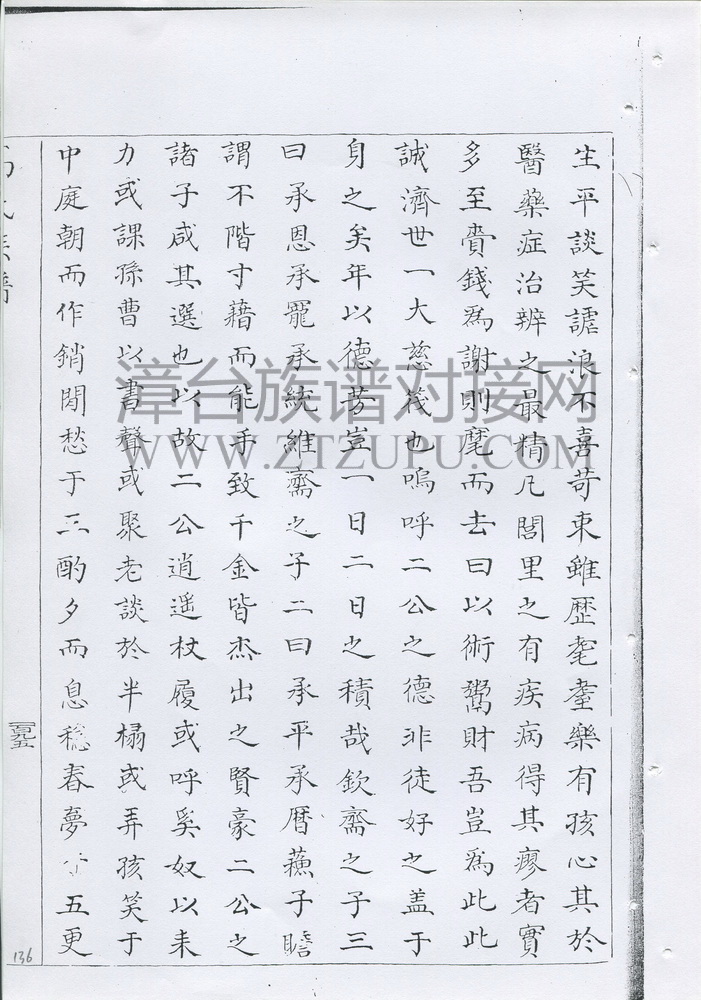 生平談笑謔浪不喜苛束雖歷耄耋樂有孩心其於
醫藥症治辨之最精凡閭里之有疾病得其廖者實
多至賫錢為謝則麾而去曰以術鬻財吾豈為此此
誠濟世一大慈筏也嗚呼二公之德非徒好之盖于
身之矣年以德芳豈一日二日之積哉欽齋之子三
曰承恩承寵承統維齋之子二曰承平承曆蘓子瞻
謂不階寸藉而能手致千金皆杰出之賢豪二公之
諸子咸其選也以故二公逍遥杖履或呼奚奴以耒
力或課孫曹以書聲或聚老談於半榻或弄孩笑于
中庭朝而作銷閒愁于三酌夕而息穏春夢于五更
一百九五
136
漳台族谱对接网
WWW.ZTZUPU.COM